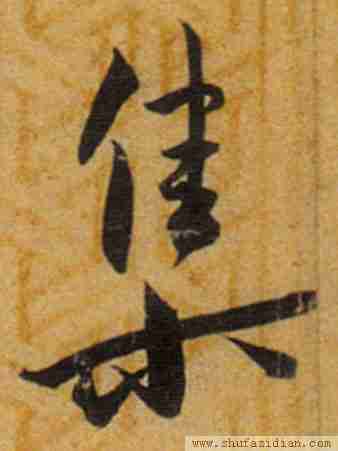 集
www.shufazidian.com